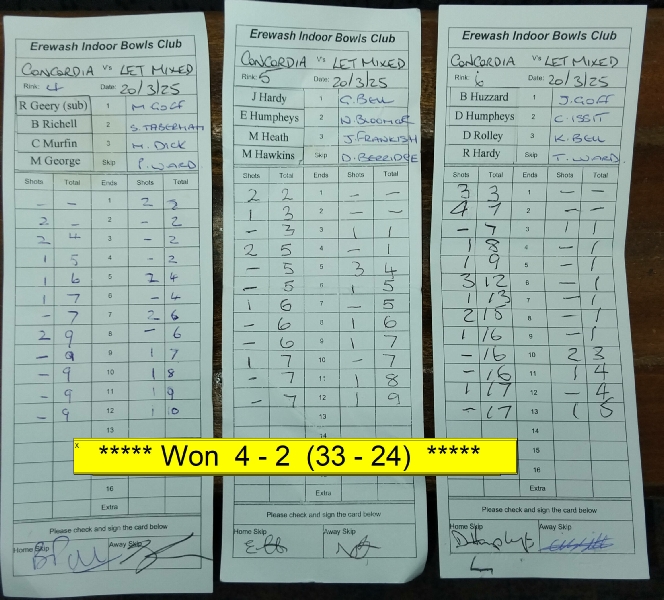 Erewash Indoor Bowls Club
CONCORDIA Vs LET MIXED
Rink: 4 Date: 20/3/25
R Geery (sub) 1 M GOFF
B Richell 2 S. TABERHAM
C Murfin 3 M. DICK
M George Skip P. WARD
Shots Total Ends Shots Total
– – 1 2 2
2 – 2 – 2
2 4 3 – 2
1 5 4 – 2
1 6 5 2 4
1 7 6 – 4
– 7 7 2 6
2 9 8 – 6
– 9 9 1 7
– 9 10 1 8
– 9 11 1 9
– 9 12 1 0
16
Extra
Please check and sign the card below
Home Skip Away Skip
Erewash Indoor Bowls Club
CONCORDIA Vs LET MIXED
Rink: 5 Date: 20/3/25
J Hardy 1 G. BELL
E Humpheys 2 N. BLOOMOR
M Heath 3 J. FRANKISH
M Hawkins Skip D. BERRIDGE
Shots Total Ends Shots Total
2 2 1 – –
1 3 2 – –
– 3 3 1 1
2 5 4 – 1
– 5 5 3 4
– 5 6 1 5
1 6 7 – 5
– 6 8 1 6
– 6 9 1 7
1 7 10 – 7
– 7 11 1 8
– 7 12 1 9
13
14
Extra
Please check and sign the card below
Home Skip Away Skip
Erewash Indoor Bowls Club
CONCORDIA Vs LET MIXED
Rink: 6 Date: 20/3/25
B Huzzard 1 J. GOFF
D Humpheys 2 C. ISSIT
D Rolley 3 K. BELL
R Hardy Skip T. WARD
Shots Total Ends Shots Total
3 3 1 – –
4 7 2 – –
– 7 3 1 1
1 8 4 – 1
1 9 5 – 1
3 12 6 – 1
1 13 7 – 1
2 15 8 – 1
1 16 9 – 1
– 16 10 2 3
– 16 11 1 4
1 17 12 – 4
– 17 13 1 5
14
15
16
Extra
Please check and sign the card below
Home Skip Away Skip
x
***** Won 4 - 2 (33 - 24) *****